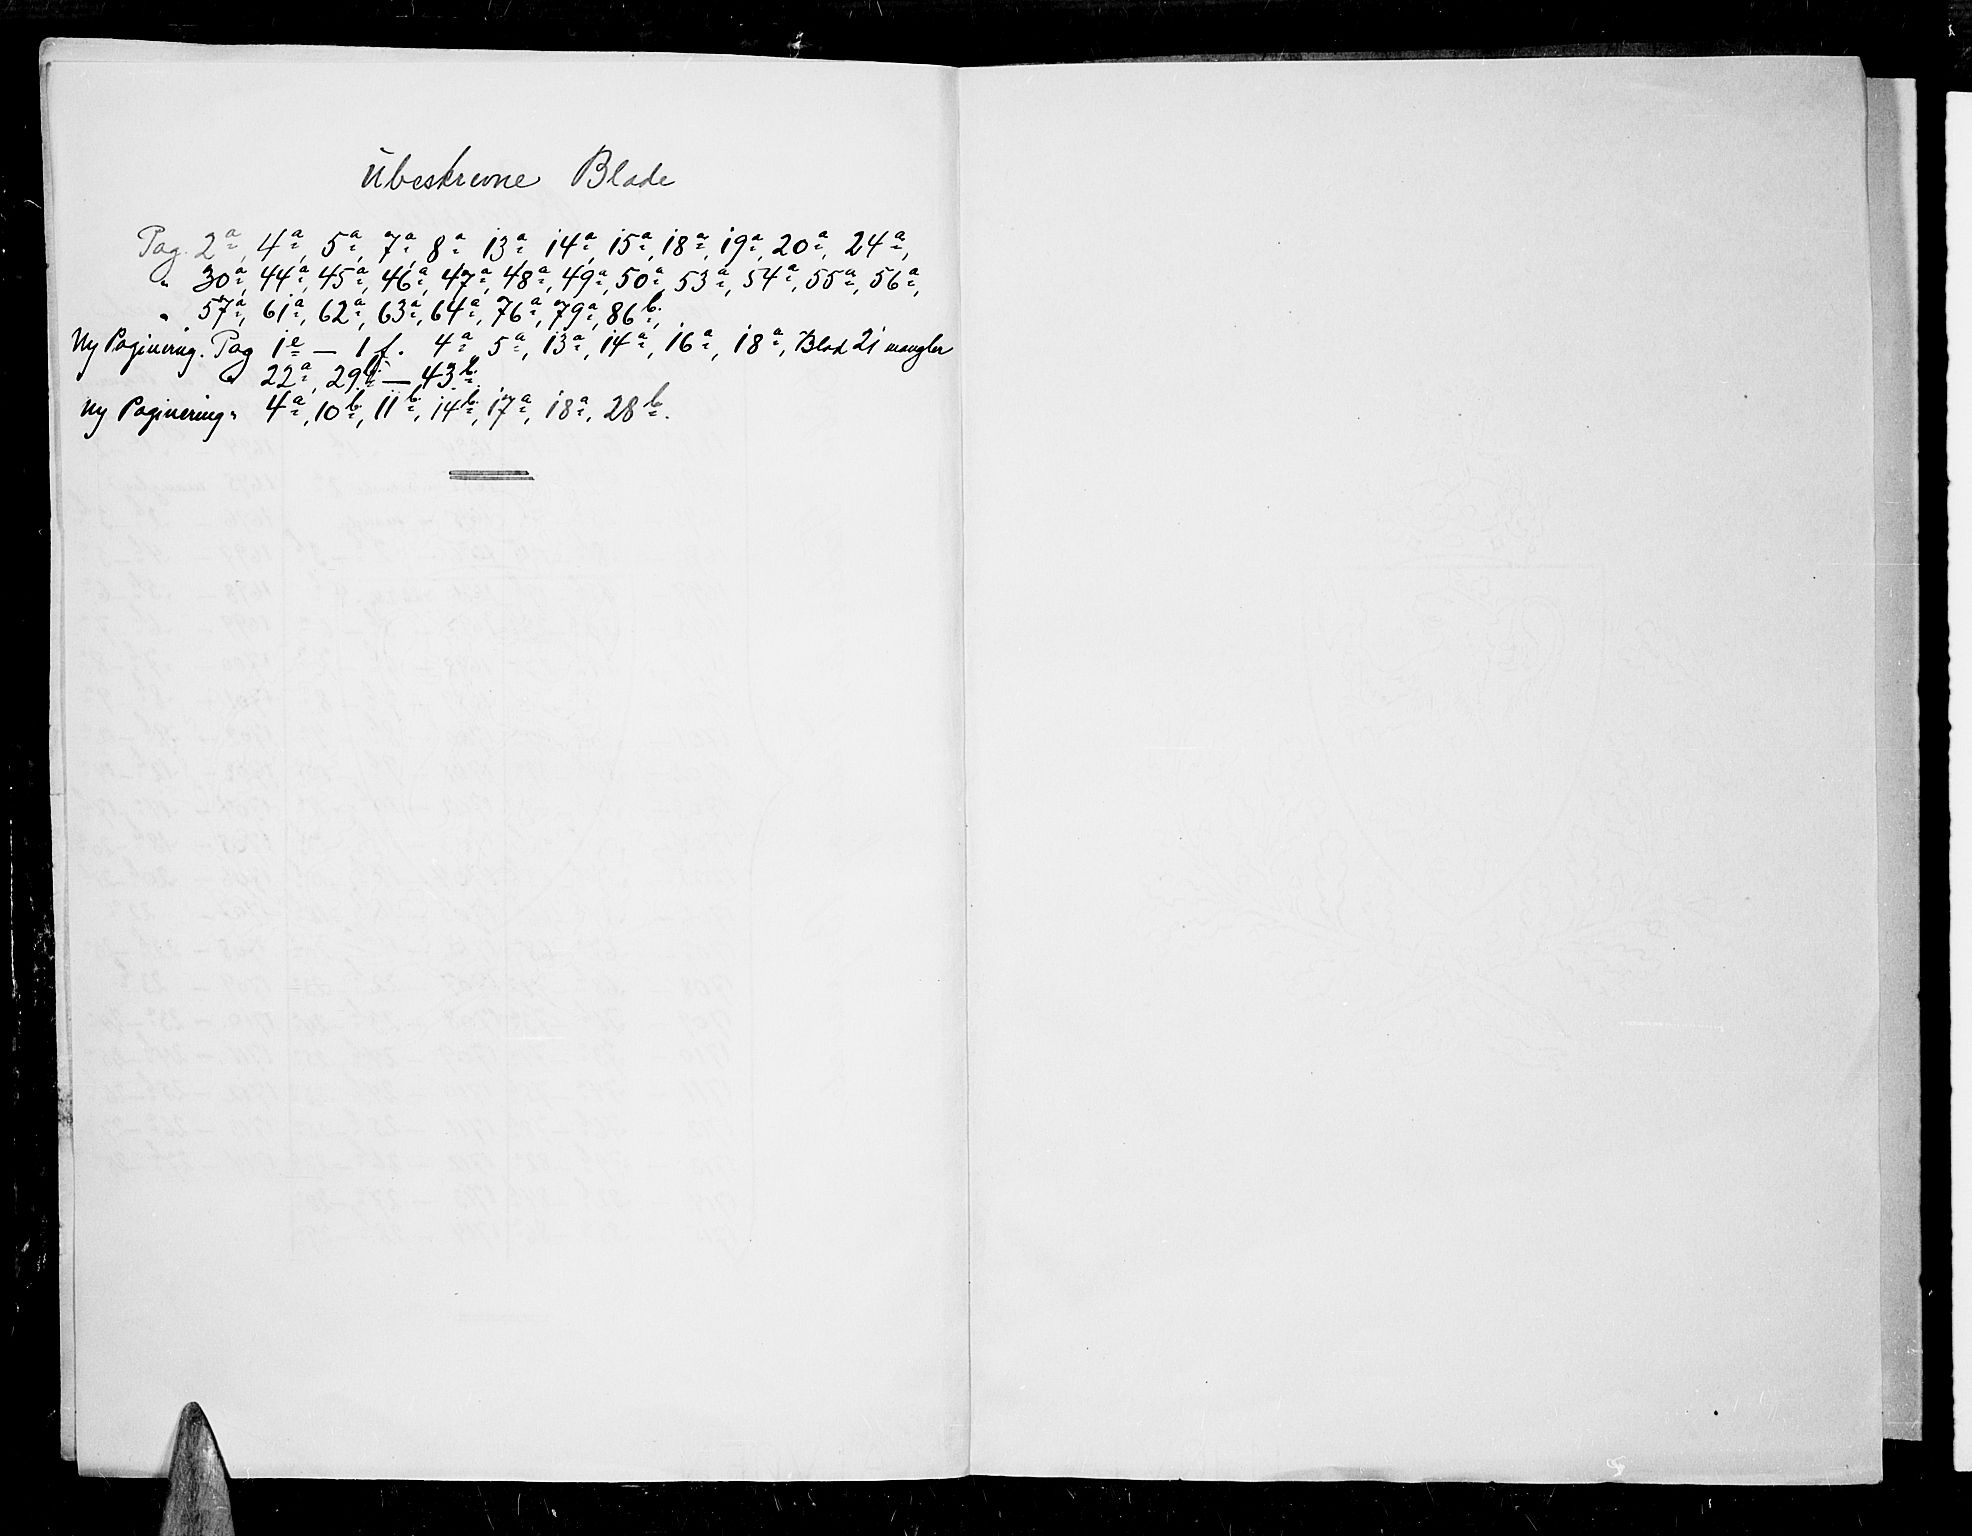 Ubeskrevne Blade
Pag. 2a, 4a, 5a, 7a, 8a 13a, 14a, 15a, 18a, 19a, 20a, 24a,
" 30a, 44a, 45a, 46a, 47a, 48a, 49a, 50a, 53a, 54a, 55a, 56a,
" 57a, 61a, 62a, 63a, 64a, 76a, 79a, 86b,
Ny Paginering. Pag 1e — 1f. 4a, 5a, 13a, 14a, 16a, 18a, Blad 21 mangler
" 22a, 29b — 43b.
Ny Paginering " 4a, 10b, 11b, 14b, 17a, 18a, 28b.